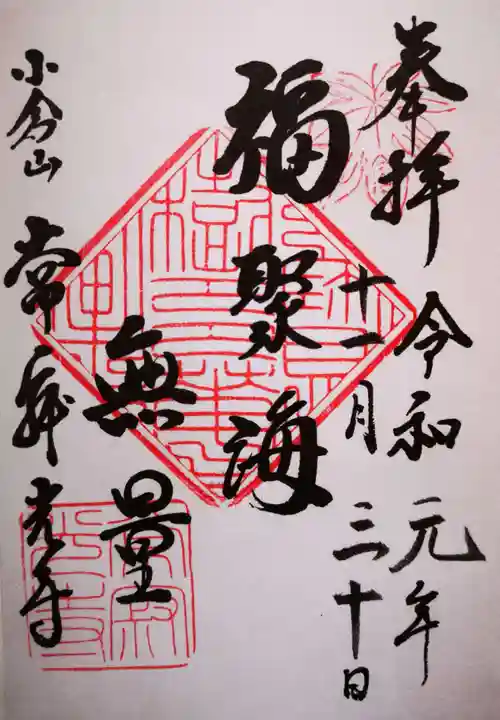 奉拝 令和元年
十一月三十日
福聚海
無量
小倉山 常寂光寺